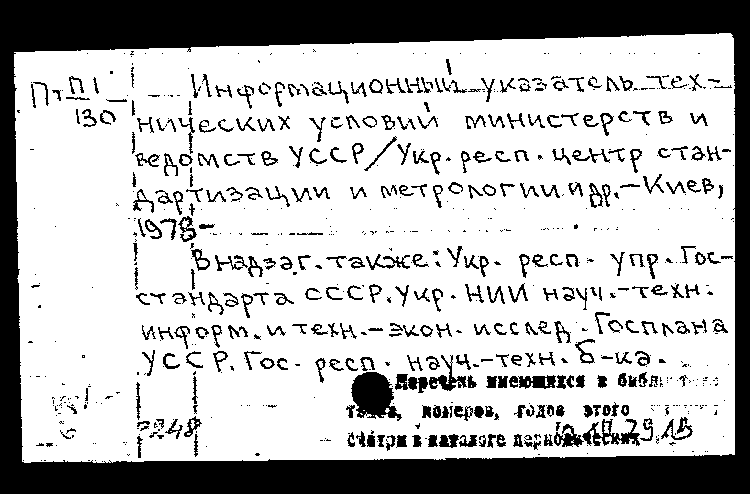 Пт П1
130
Информационный указатель тех-
нических условий министерств и
ведомств УССР/Укр. респ. центр стан-
дартизации и метрологии и др. – Киев,
1978 –
В надзаг. также: Укр. респ. упр. Гос-
стандарта СССР. Укр. НИИ науч.-техн.
информ. и техн.-экон. исслед. Госплана
УССР. Гос. респ. науч.-техн. б-ка.
Перечень имеющихся в
номеров, годов этого
смотри в каталоге периодических
2248